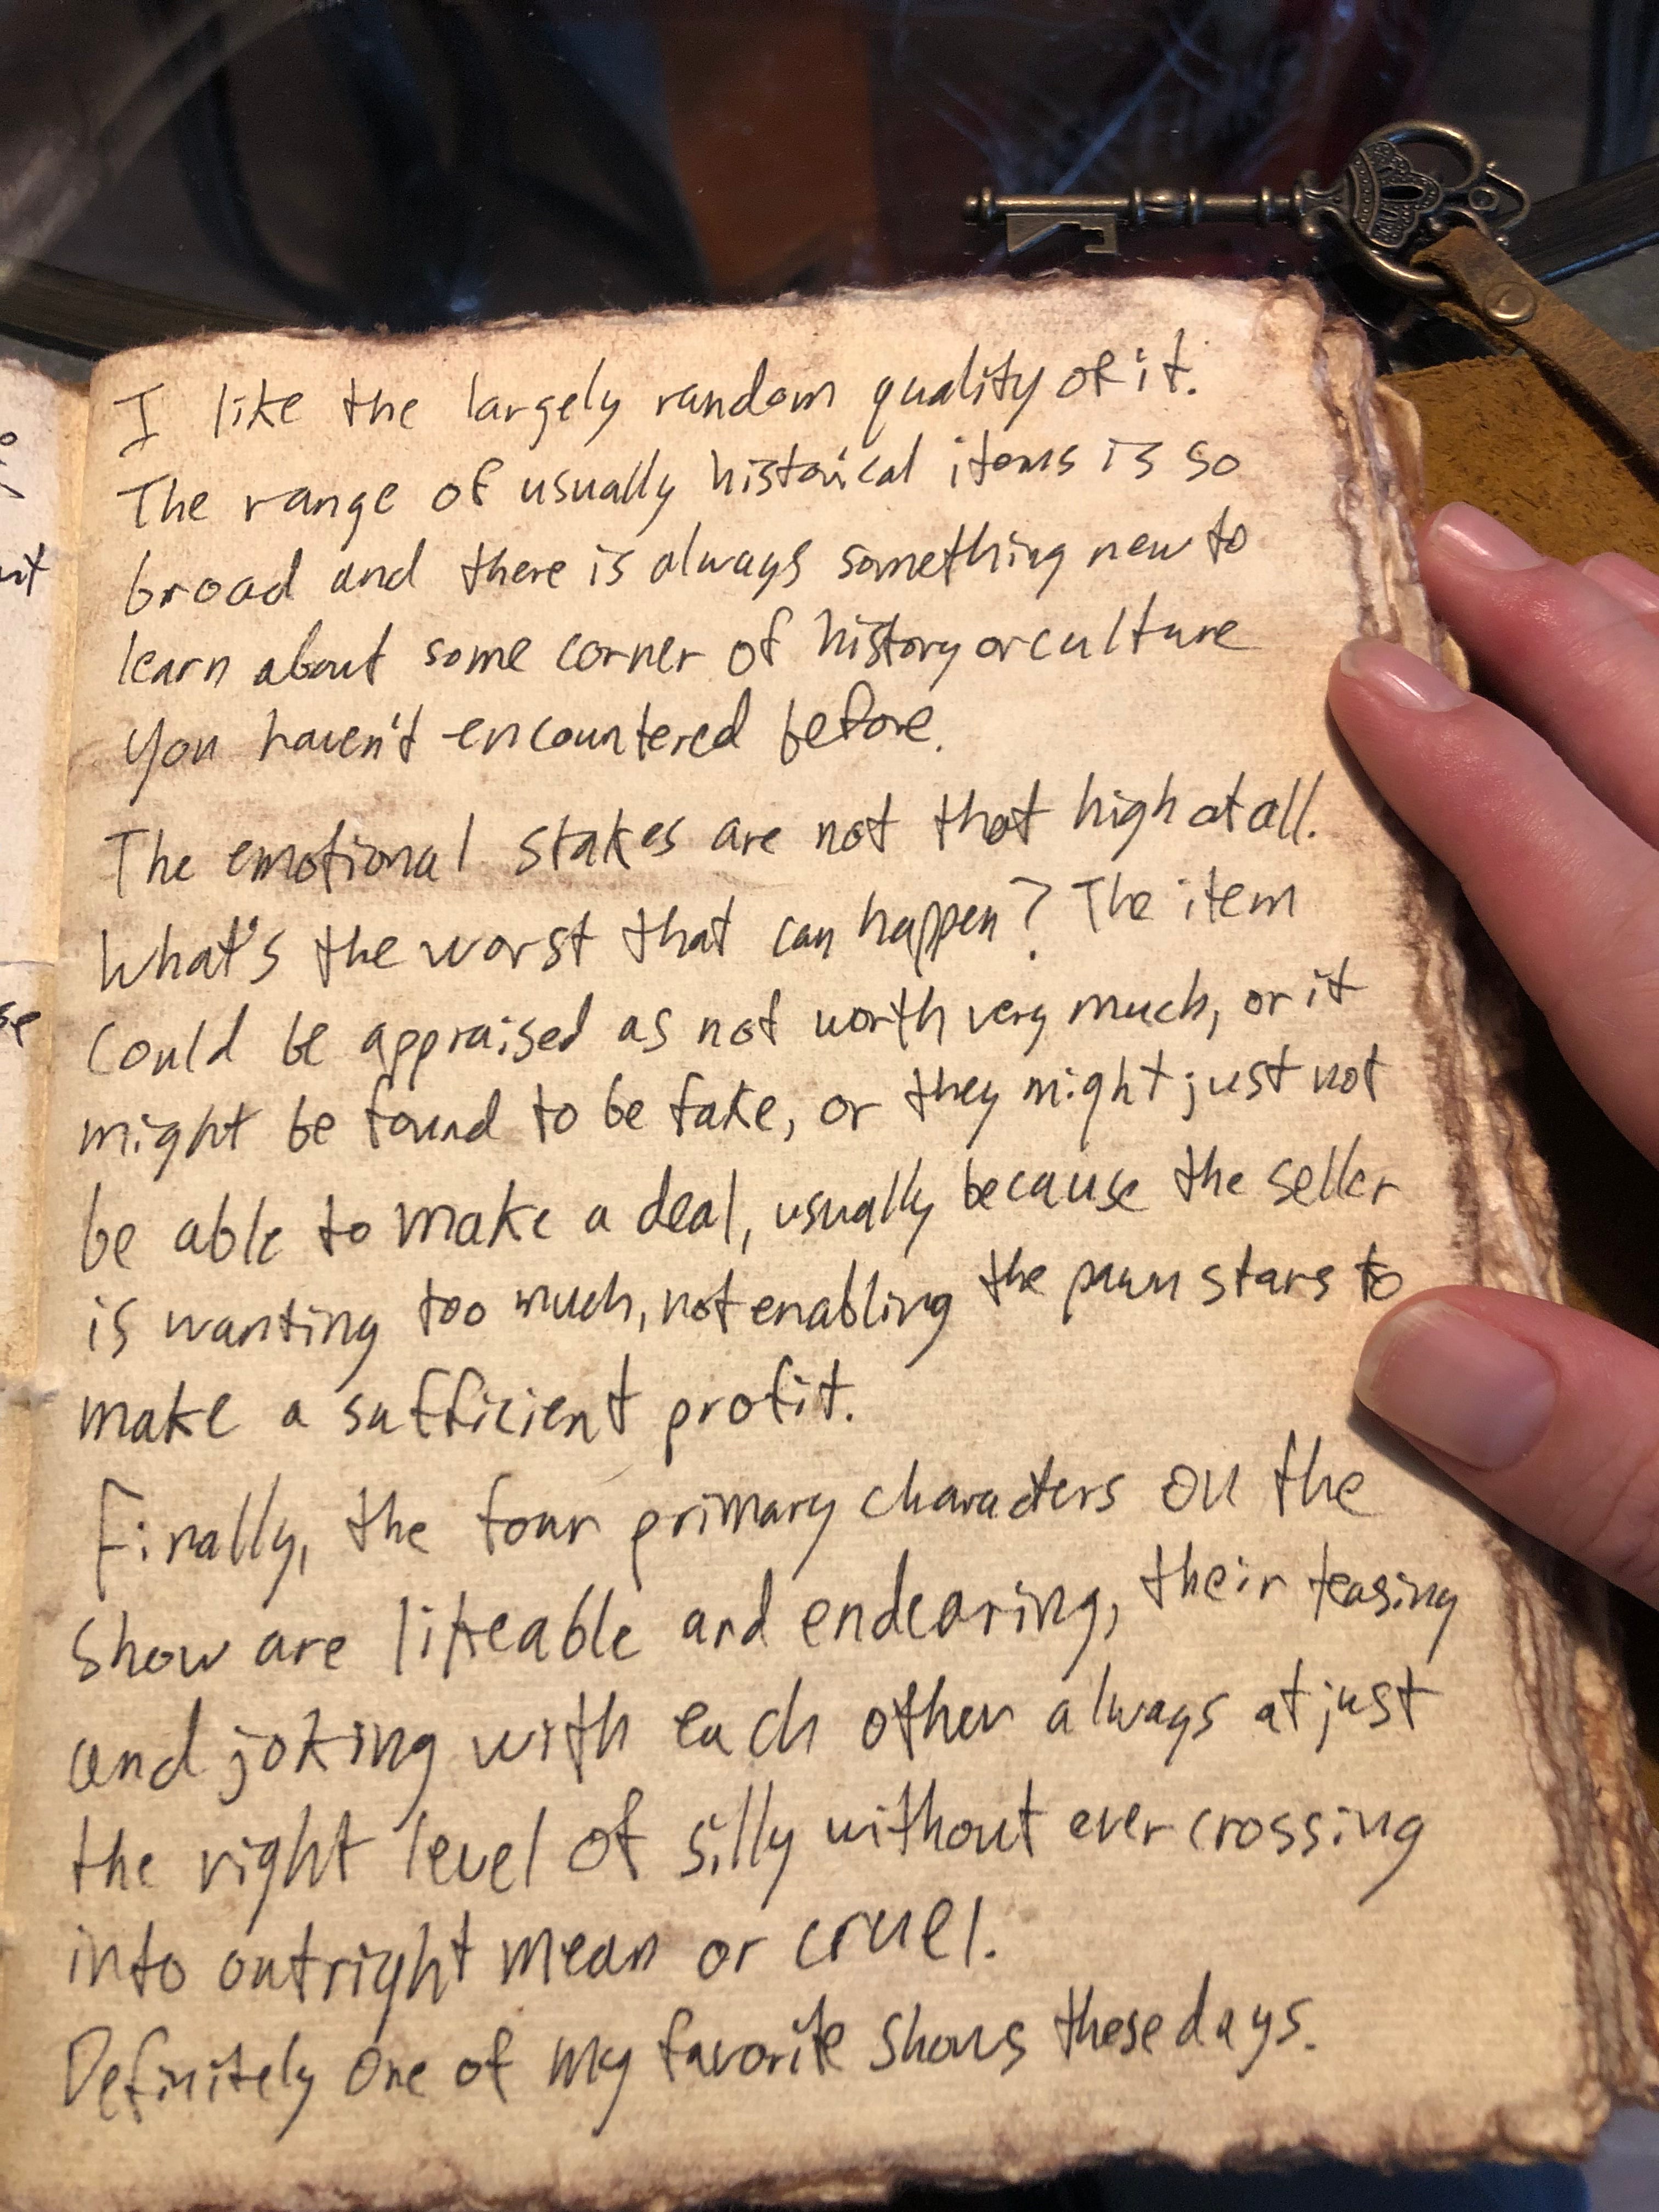 I like the largely random quality of it.
The range of usually historical items is so
broad and there is always something new to
learn about some corner of history or culture
you haven't encountered before.
The emotional stakes are not that high at all.
What's the worst that can happen? The item
could be appraised as not worth very much, or it
might be found to be fake, or they might just not
be able to make a deal, usually because the seller
is wanting too much, not enabling the pawn stars to
make a sufficient profit.
Finally, the four primary characters on the
show are likeable and endearing, their teasing
and joking with each other always at just
the right level of silly without ever crossing
into outright mean or cruel.
Definitely one of my favorite shows these days.